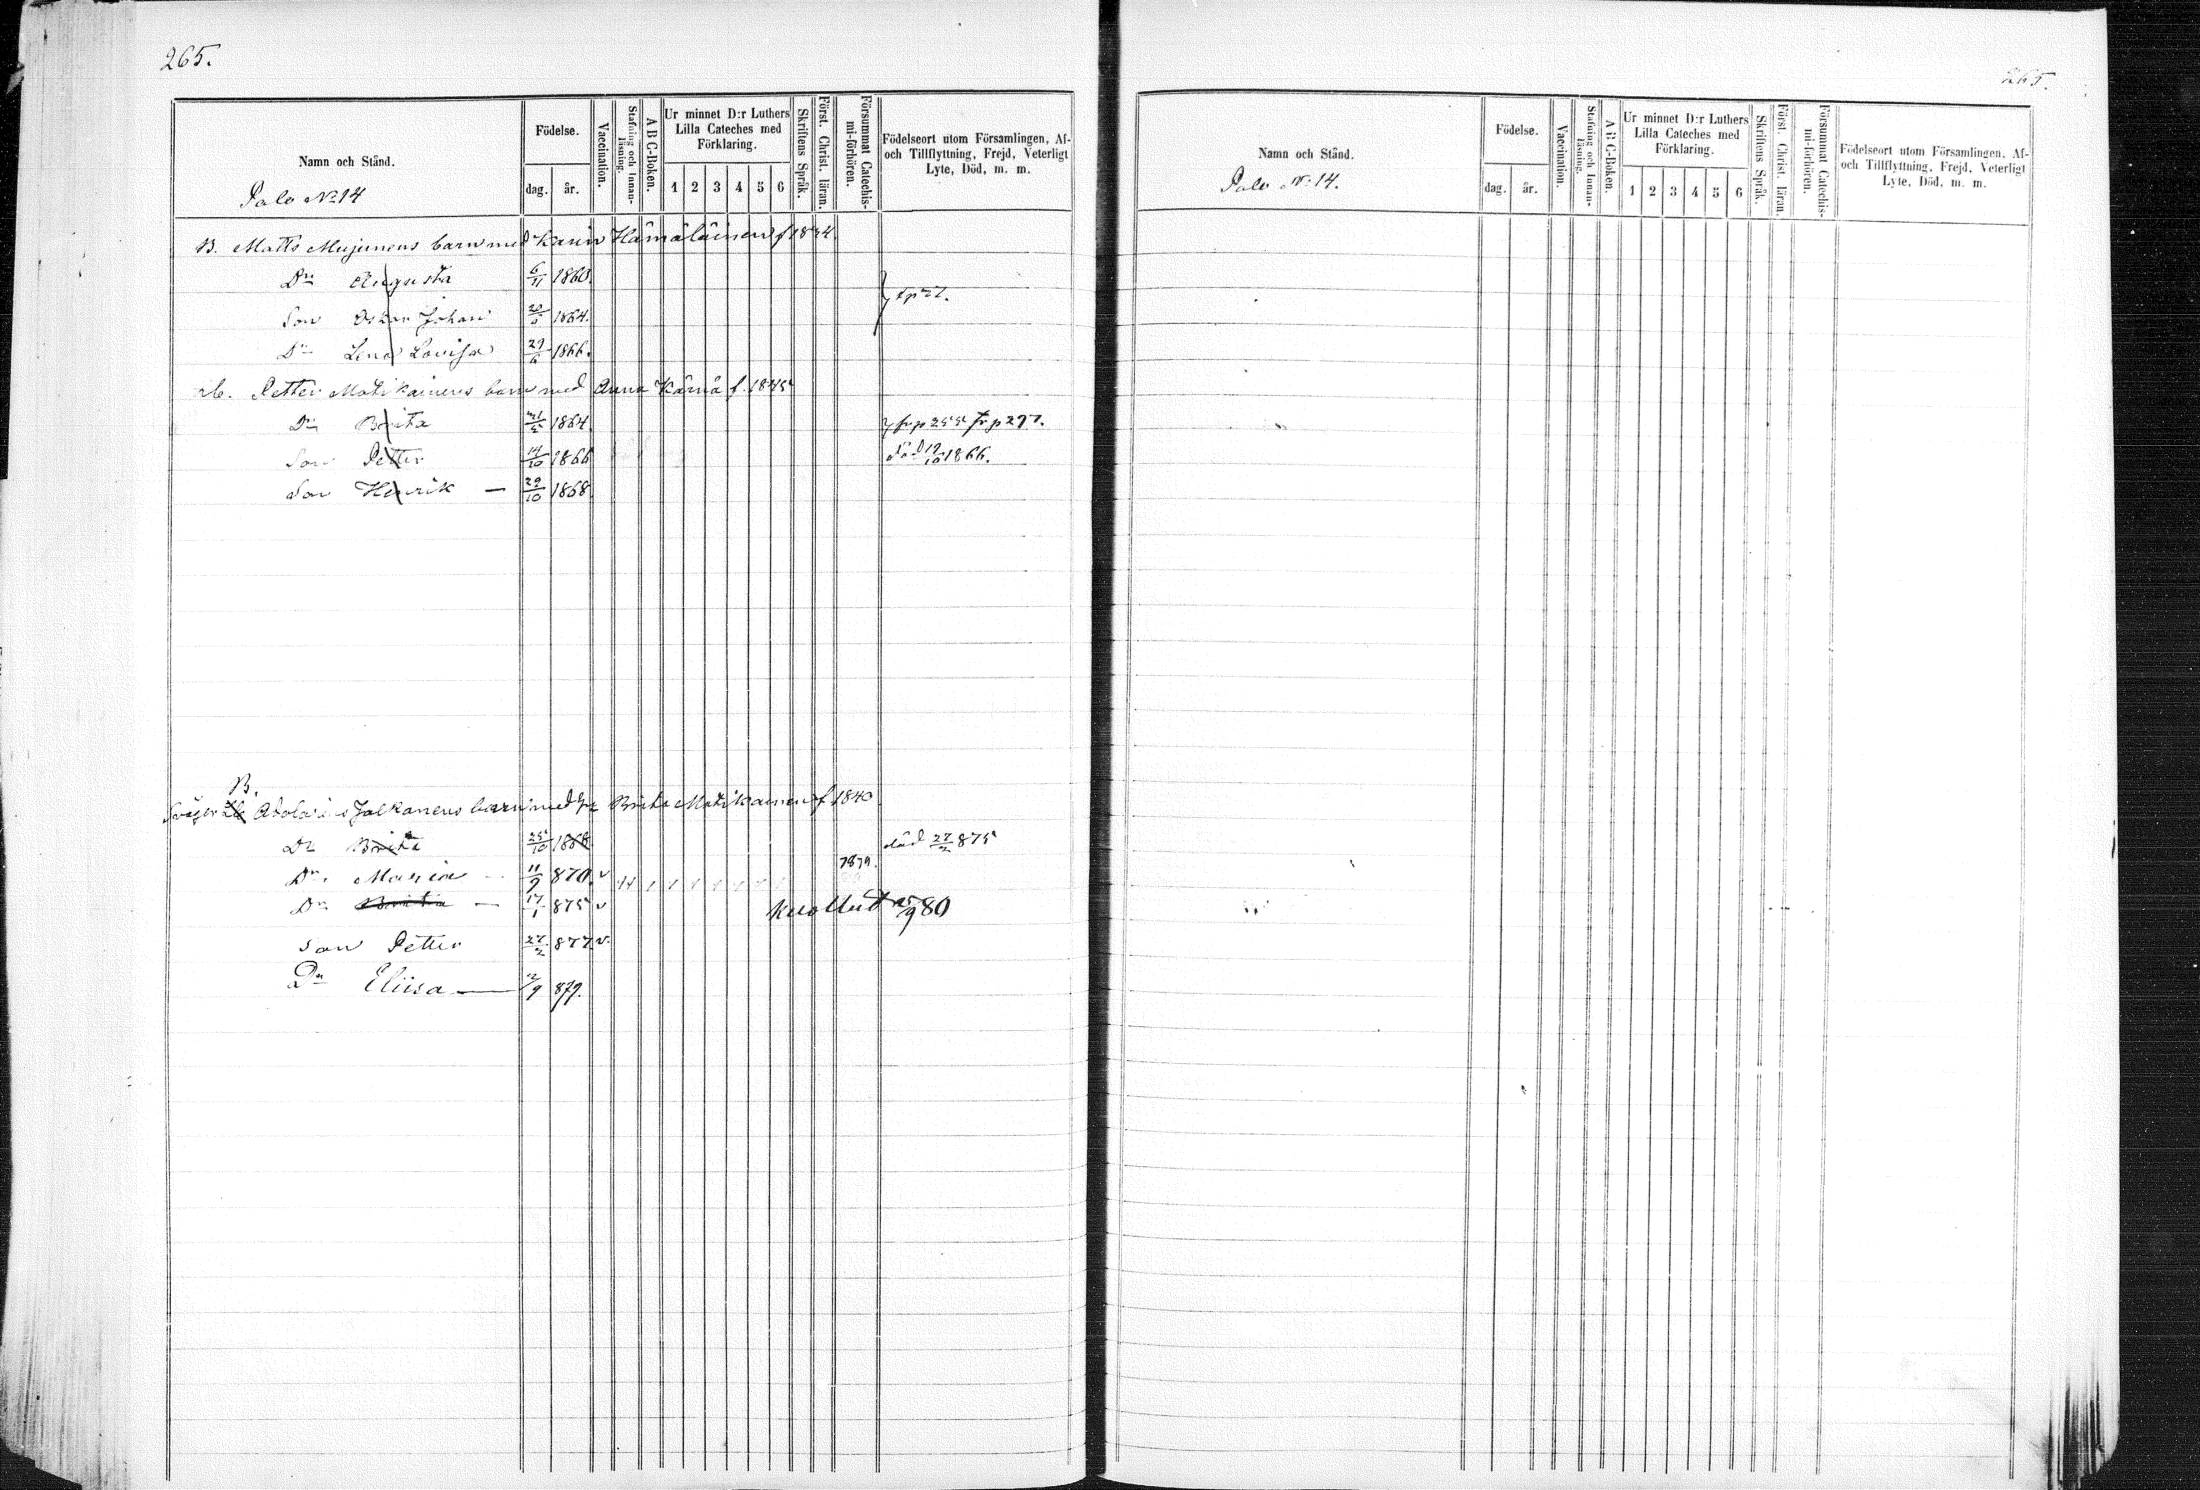 265.
Namn och Stånd.
Födelse.
dag. år.
Vaccination.
Stafning och Innan-läsning.
A B C-Boken.
Ur minnet D:r Luthers Lilla Cateches med Förklaring.
1 2 3 4 5 6
Skriftens Språk.
Först. Christ. läran.
Försummat Catechis-mi-förhören.
Födelseort utom Församlingen, Af- och Tillflyttning, Frejd, Veterligt Lyte, Död, m. m.
Palo No 14
B. Matts Mujunens barn med Karin Hämäläinen f 1834.
Dr Augusta 6/11 1860.
Son Oskar Johan 1864.
Dr Lena Lovisa 29/6 1866.
Petter Matikainens barn med Anna Kärnä f. 1845
Dr Brita 1864. fr p 255 fr p 297.
Son Petter 14/10 1866 död 19/10 1866.
Son Henrik — 29/10 1868
B.
Svåger Adolarius Jalkanens barn med Brita Matikainen f 1840
Dr Brita 25/10 1868 död 27/2 875
Dr. Maria 11/9 870. v 1879.
Dr Brita — 17/1 875 v kuollut 25/9 80
Son Petter 27/2 877 v.
Dr Eliisa — 12/9 879.
265.
Namn och Stånd.
Födelse.
dag. år.
Vaccination.
Stafning och Innan-läsning.
A B C-Boken.
Ur minnet D:r Luthers Lilla Cateches med Förklaring.
1 2 3 4 5 6
Skriftens Språk.
Först. Christ. läran.
Försummat Catechis-mi-förhören.
Födelseort utom Församlingen, Af- och Tillflyttning, Frejd, Veterligt Lyte, Död, m. m.
Palo No: 14.